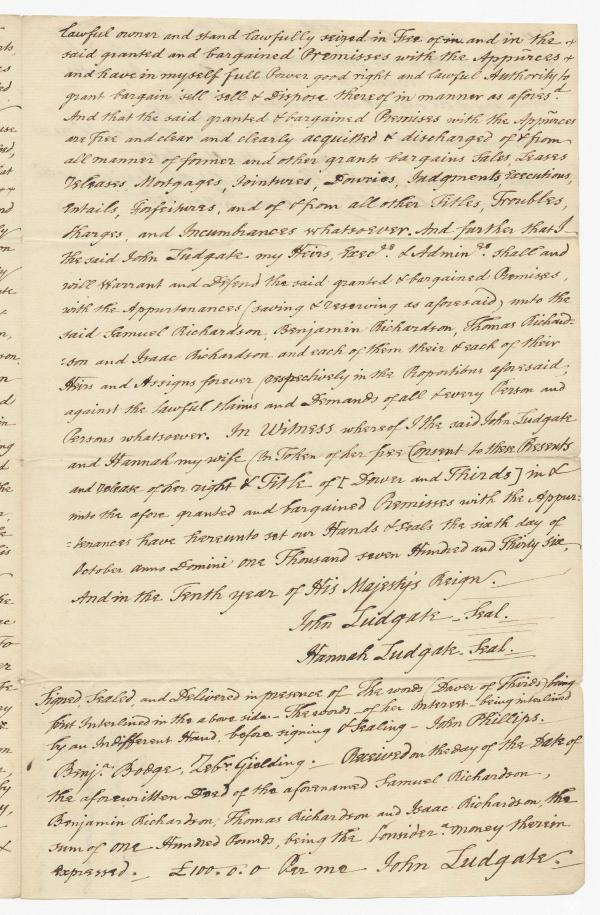 lawful owner and stand lawfully seized in Fee of in and in the +
said granted and bargained Premisses with the Appurces +
and have in myself full Power good right and lawful Authority to
grant bargain sell & Dispose thereof in manner as aforesd
And that the said granted & bargained Premises with the Appurces
are Free and clear and clearly acquitted & discharged of & from
all manner of former and other grants bargains Sales, Leases
Releases, Mortgages, Jointures, Dowries, Judgments, Executions,
Entails, Forfeitures, and of & from all other Titles, Troubles,
Charges, and Incumbrances whatsoever. And further that I
the said John Ludgate my Heirs, Execrs & Adminrs shall and
will Warrant and Defend the said granted & bargained Premises,
with the Appurtenances (saving & reserving as aforesaid) unto the
said Samuel Richardson, Benjamin Richardson, Thomas Richard-
-son and Isaac Richardson and each of them their & each of their
Heirs and Assigns forever respectively in the Proportions aforesaid,
against the lawful Claims and Demands of all & every Person and
Persons whatsoever. In Witness whereof I the said John Ludgate
and Hannah my wife (In Token of her free Consent to these Presents
and release of her right & Title of [Dower and Thirds] in &
unto the afore granted and bargained Premisses with the Appur-
-tenances have hereunto set our Hands & Seals the sixth day of
October anno Domini One Thousand seven Hundred and Thirty six,
And in the Tenth year of His Majesty's Reign.
John Ludgate - Seal.
Hannah Ludgate - Seal.
Signed, Sealed, and Delivered in presence of The words (Dower of Thirds) being
first Interlined in the above side - The words - of her Interest - being interlined
by an Indifferent Hand, before signing & sealing - John Phillips.
Benja Bodge, Zebr Gielding. Received on the day of the Date of
the aforewritten Deed of the aforenamed Samuel Richardson,
Benjamin Richardson, Thomas Richardson and Isaac Richardson, the
sum of One Hundred Pounds, being the Considera money therein
expressed. £100.0.0 Per me John Ludgate.